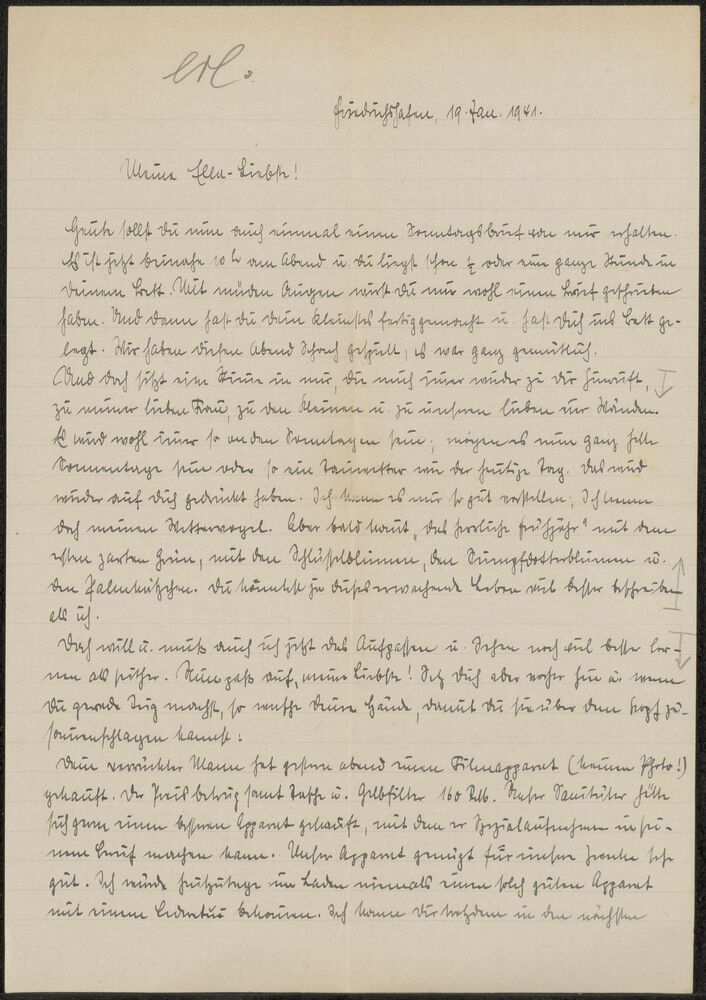 erl.
Friedrichshafen, 19. Jan. 1941.
Meine Ella-Liebste!
Heute sollst Du nun auch einmal einen Sonntagsbrief von mir erhalten.
Es ist jetzt beinahe 10 h am Abend u. Du liegst schon ½ oder eine ganze Stunde in
Deinem Bett. Mit müden Augen wirst Du mir wohl einen Brief geschrieben
haben. Und dann hast Du Dein Kleinstes fertiggemacht u. hast Dich ins Bett ge-
legt. Wir haben diesen Abend Schach gespielt, es war ganz gemütlich.
Und doch sitzt eine Stimme in mir, die mich immer wieder zu Dir hinruft,
zu meiner lieben Frau, zu den Kleinen u. zu unsern lieben vier Wänden.
Es wird wohl immer so an den Sonntagen sein; mögen es nun ganz helle
Sonnentage sein oder so ein Tauwetter wie der heutige Tag. Das wird
wieder auf Dich gedrückt haben. Ich kann es mir so gut vorstellen; Ich kenne
doch meinen Wettervogel. Aber bald kommt "das herrliche Frühjahr" mit dem
ersten zarten Grün, mit den Schlüsselblumen, den Sumpfdotterblumen u.
den Palmkätzchen. Du könntest ja dieses erwachende Leben viel besser beschreiben
als ich.
Doch will u. muß auch ich jetzt das Aufpassen u. Sehen noch viel besser ler-
nen als seither. Nun paß auf, meine Liebste! Setz Dich aber vorher hin u. wenn
Du gerade Teig machst, so wasche Deine Hände, damit Du sie über dem Kopf zu-
sammenschlagen kannst:
Dein verrückter Mann hat gestern abend einen Filmapparat (keinen Photo!)
gekauft. Der Preis betrug samt Tasche u. Gelbfilter 160 RM. Unser Sanitäter hätte
sich gern einen besseren Apparat gekauft, mit dem er Spezialaufnahmen in sei-
nem Beruf machen kann. Unser Apparat genügt für unsere Zwecke sehr
gut. Ich würde heutzutage im Laden niemals einen solch guten Apparat
mit einem Lederetui bekommen. Ich kann Dir trotzdem in den nächsten